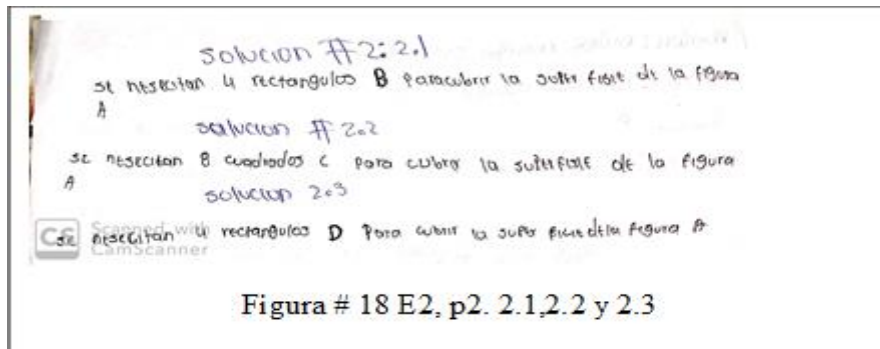 solucion #2: 2.1
se nesecitan 4 rectangulos B para cubrir la super ficie de la figura
A
solucion # 2.2
se nesecitan 8 cuadrados c para cubrir la superficie de la figura
A
solucion 2.3
se nesecitan 4 rectangulos D para cubrir la super ficie de la figura A
CS Scanned with
CamScanner
Figura # 18 E2, p2. 2.1,2.2 y 2.3